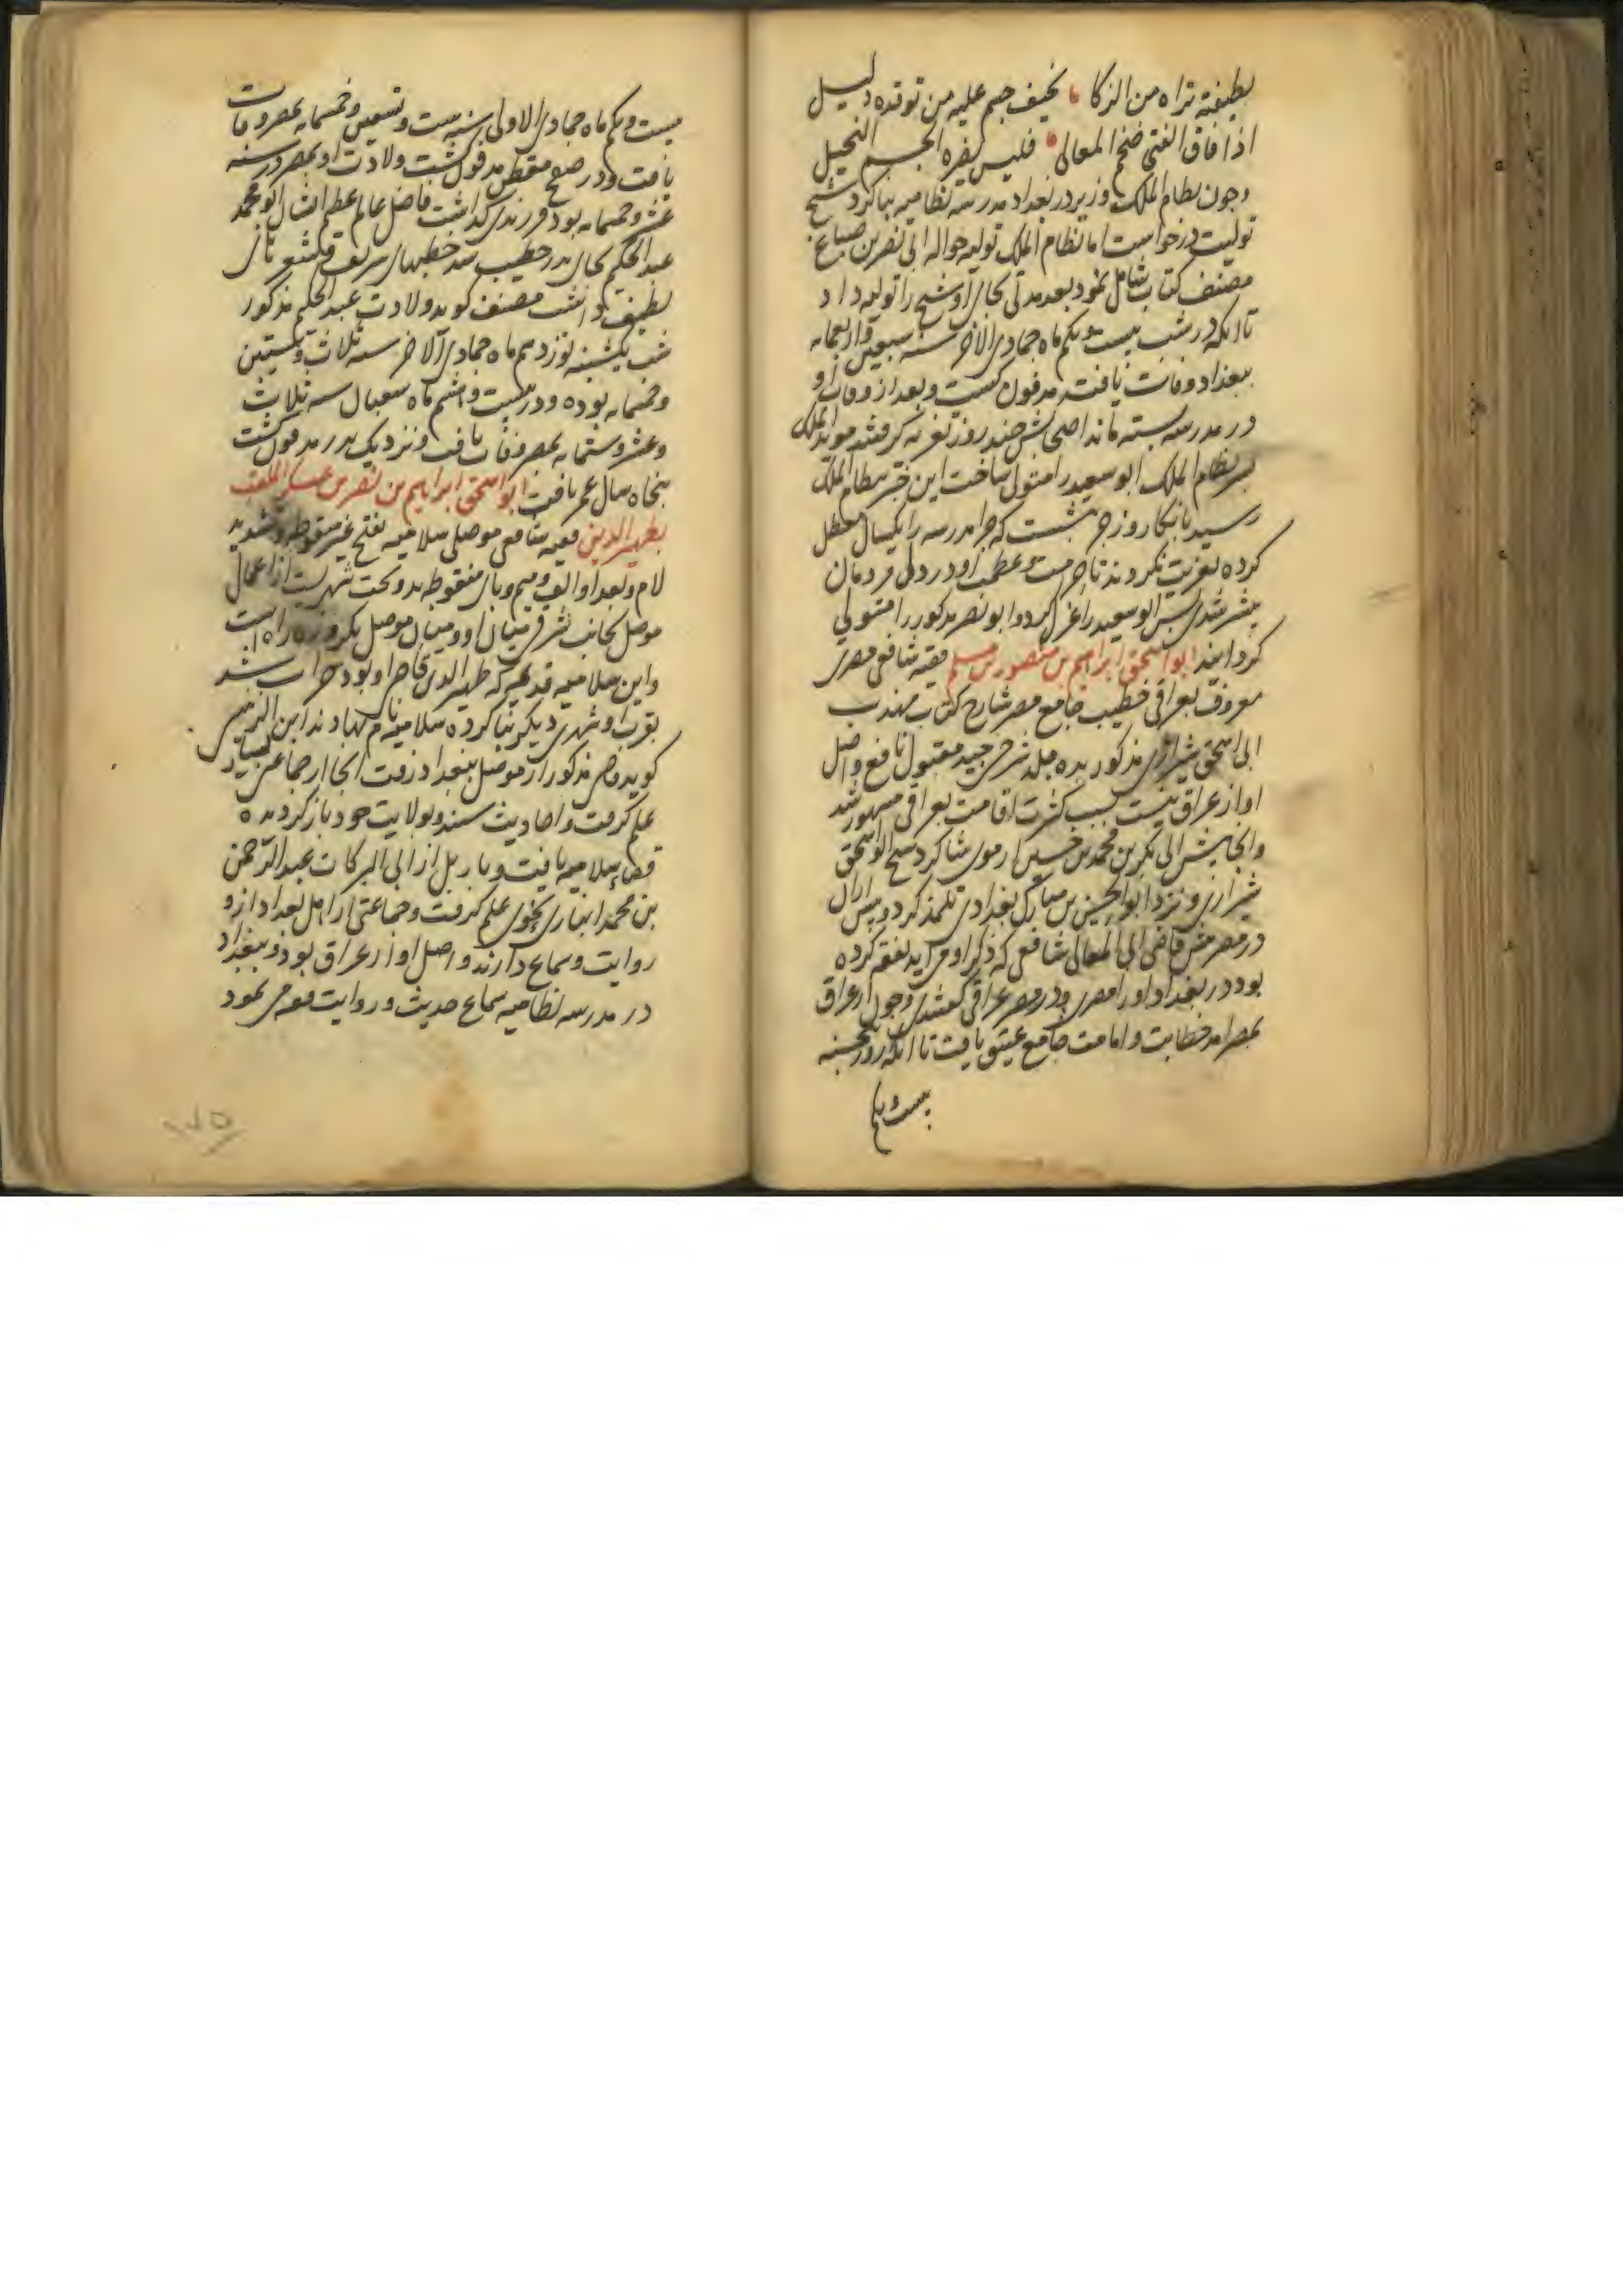 لطیفة تراه من الذکا نحیف جسم علیه من توقده دلیل
اذا فاق الفتی ضخم المعالی فلیس یضره الجسم النحیل
وجون نظام الملک وزیر در بغداد مدرسه نظامیه بنا کرد شیخ
تولیت درخواست اما نظام الملک تولیه حواله ابی نصر بن صباغ
مصنف کتاب شامل نمود بعد مدتی بجای او شیخ را تولیه داد
تا انکه در شب بیست و یکم ماه جمادی الاخر سنه سبعین و اربعمایه
ببغداد وفات یافت مدفون کشت و بعد از وفات او
در مدرسه بسته ماند اصحابش چند روز تعزیه کرفتند موید الملک
پسر نظام الملک ابو سعید را متولی ساخت این خبر بنظام الملک
رسید بانکار وزجر نبشت که چرا مدرسه را یکسال معطل
کرده تعزیت نکردند تا حرمت و عظمت او در دل مردمان
بیشتر شدی پس ابو سعید را عزل کرد و ابو نصر مذکور را متولی
کردانید ابو اسحق ابراهیم بن منصور بن مسلم فقیه شافعی مصری
معروف بعراقی خطیب جامع مصر شارح کتاب مهذب
ابی اسحق شیرازی مذکور بده مجلد شرحی جید مقبول نافع و اصل
او از عراق نیست بسبب کثرت اقامت بعراقی مشهور شد
و انجا پیش ابی بکر بن محمد بن حسین ارموی شاکرد شیخ ابو اسحق
شیرازی و نزد ابو الحسن بن مبارک بغدادی تلمذ کرد و پیش ازان
در مصر پیش قاضی ابی المعالی شافعی که ذکر او می اید تفقه کرده
بود در بغداد او را مصری و در مصر عراقی کفتندی وجون از عراق
بمصر امد خطابت و امامت جامع عتیق یافت تا انکه روز پنجشنبه
بیست و یکم
بیست و یکم ماه جمادی الاولی سنه ست و تسعین و خمسمایه بمصر وفات
یافت و در صفح مقطم مدفون کشت ولادت او بمصر در سنه
عشر و خمسمایه بود و فرزندی کذاشت فاضل عالم عظیم الشان ابو محمد
عبد الحکیم بجای پدر خطیب شد خطبهای شریف و شعر
لطیف داشت مصنف کوید ولادت عبد الحکیم مذکور
شب یکشنبه نوزدهم ماه جمادی الاخر سنه ثلاث و ستین
و خمسمایه بوده و در بیست و هشتم ماه شعبان سنه ثلاث
و عشر و ستمایه بمصر وفات یافت و نزدیک پدر مدفون کشت
پنجاه سال عمر یافت ابو اسحق ابراهیم بن نصر بن عسکر الملقب
بظهیر الدین فقیه شافعی موصلی سلامیه بفتح غیر منقوطه و تشدید
لام و بعد او الف و میم و یای منقوطه بدو تحت شهریست از اعمال
موصل بجانب شرقی میان او و میان موصل یکروزه راه است
و این سلامیه قدیمه که ظهیر الدین قاضی او بود خراب شد
بقرب او شهری دیکر بنا کرده سلامیه نام نهادند ابن الدبیثی
کوید قاضی مذکور از موصل ببغداد رفت انجا از جماعتی بسیار
علم کرفت و احادیث شنید و بولایت خود باز کردیده
قضاء سلامیه یافت و باربل از ابی البرکات عبد الرحمن
بن محمد انباری نحوی علم کرفت و جماعتی از اهل بغداد ازو
روایت و سماع دارند و اصل او از عراق بود و ببغداد
در مدرسه نظامیه سماع حدیث و روایت فقه می نمود